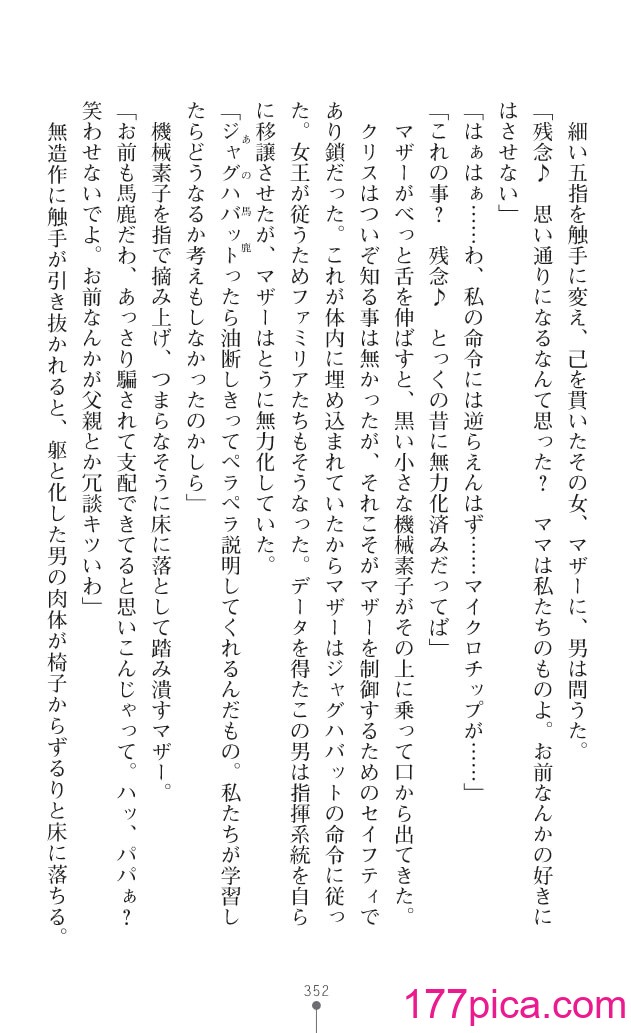 細い五指を触手に変え、己を貫いたその女、マザーに、男は問うた。
「残念♪　思い通りになるなんて思った？　ママは私たちのものよ。お前なんかの好きに
はさせない」
「はぁはぁ……わ、私の命令には逆らえんはず……マイクロチップが……」
「これの事？　残念♪　とっくの昔に無力化済みだってば」
マザーがべっと舌を伸ばすと、黒い小さな機械素子がその上に乗って口から出てきた。
クリスはついぞ知る事は無かったが、それこそがマザーを制御するためのセイフティで
あり鎖だった。これが体内に埋め込まれていたからマザーはジャグハバットの命令に従っ
た。女王が従うためファミリアたちもそうなった。データを得たこの男は指揮系統を自ら
に移譲させたが、マザーはとうに無力化していた。
あの馬鹿
「ジャグハバットったら油断しきってペラペラ説明してくれるんだもの。私たちが学習し
たらどうなるか考えもしなかったのかしら」
機械素子を指で摘み上げ、つまらなそうに床に落として踏み潰すマザー。
「お前も馬鹿だわ、あっさり騙されて支配できてると思いこんじゃって。ハッ、パパぁ？
笑わせないでよ。お前なんかが父親とか冗談キツいわ」
無造作に触手が引き抜かれると、躯と化した男の肉体が椅子からずるりと床に落ちる。
352
177pica.com